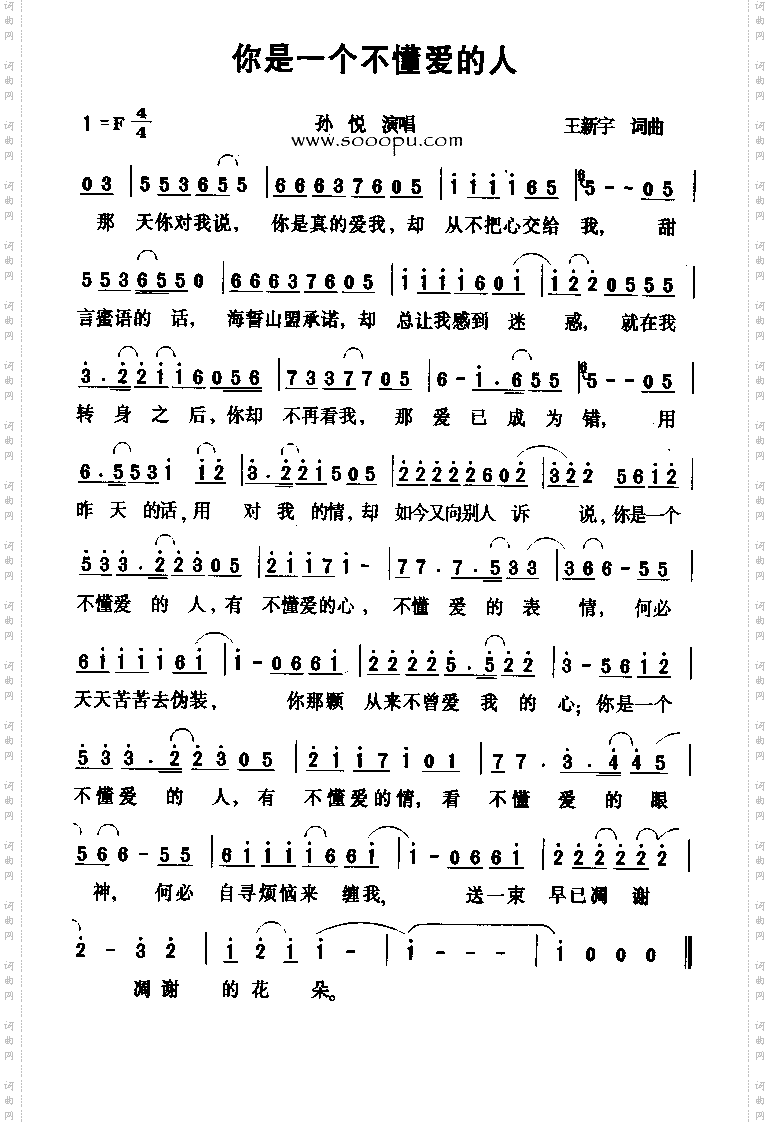 你是一个不懂爱的人
1=F 4/4 孙 悦 演唱 王新宇 词曲
www.sooopu.com
03 | 553655 | 66637605 | 111165 | 5--05 |
那 天你对我说， 你是真的爱我，却 从不把心交给 我， 甜
55365550 | 66637605 | 1111601 | 1220555 |
言蜜语的 话， 海誓山盟承诺，却 总让我感到 迷 惑， 就在我
3.22116056 | 7337705 | 6-1.655 | 5--05 |
转 身 之 后，你却 不再看我， 那 爱 已 成 为 错， 用
6.5531 12 | 3.221505 | 22222602 | 322 5612 |
昨 天 的话，用 对 我 的情，却 如今又向别人 诉 说，你是一个
533.22305 | 21171- | 77.7.533 | 366-55 |
不懂爱 的 人，有 不懂爱的心， 不懂 爱 的 表 情，何必
6111161 | 1-0661 | 22225.522 | 3-5612 |
天天苦苦去伪装， 你那颗 从来不曾爱 我 的 心；你是一个
533.22305 | 2117101 | 77.3.445 |
不懂爱 的 人，有 不懂爱的情，看 不懂 爱 的 眼
566-55 | 6111661 | 1-0661 | 222222 |
神， 何必 自寻烦恼来 缠我， 送一束 早已凋 谢
2-32 | 1211- | 1--- | 1000 ‖
凋谢 的花 朵。